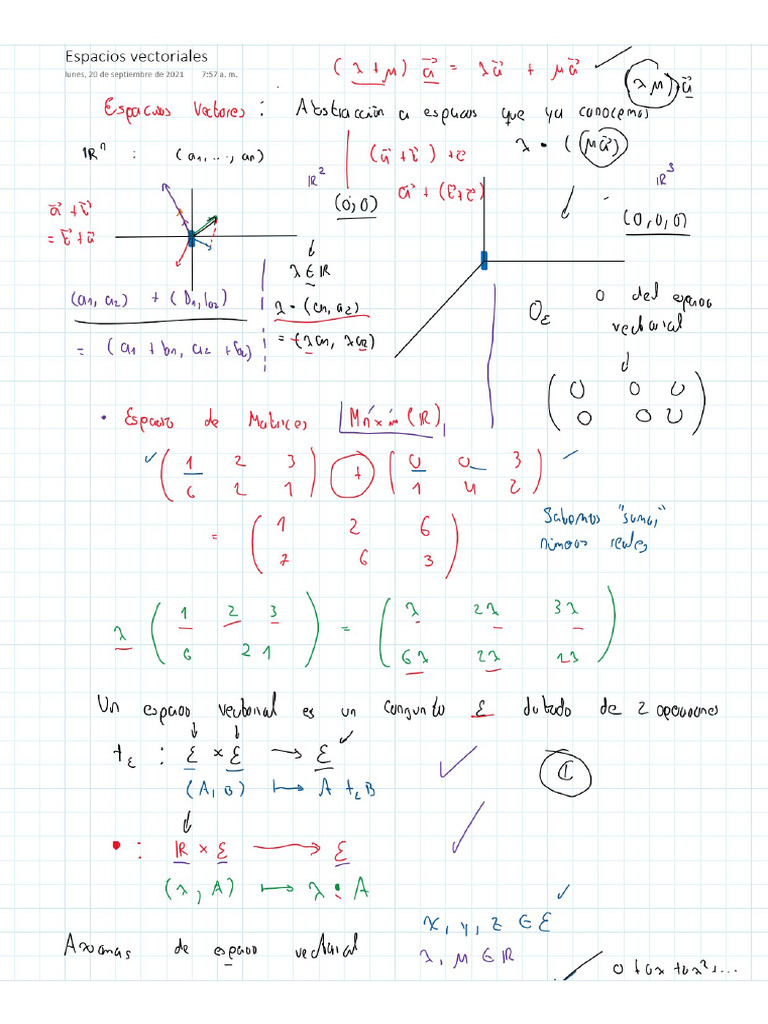 Espacios vectoriales
lunes, 20 de septiembre de 2021 7:57 a. m.
(λ + μ) a⃗ = λa⃗ + μa⃗ ✓
(λμ)·a⃗
Espacios Vectores : Abstracción a espacios que ya conocemos
λ · (μa⃗)
ℝⁿ : (a₁, ..., aₙ)
ℝ²
(a⃗ + b⃗) + c⃗
a⃗ + (b⃗ + c⃗)
ℝ³
(0,0)
(0,0,0)
a⃗ + b⃗
= b⃗ + a⃗
λ ∈ ℝ
(a₁, a₂) + (b₁, b₂)
= (a₁ + b₁, a₂ + b₂)
λ · (a₁, a₂)
= (λa₁, λa₂)
0_ε 0 del espacio
vectorial
( 0 0 0
0 0 0 )
• Espacio de Matrices Mn×m(ℝ)
✓ ( 1 2 3 ) + ( 0 0 3 ) ✓
( 6 2 1 ) ( 1 4 2 )
= ( 1 2 6 )
( 7 6 3 )
Sabemos "sumar"
números reales
λ ( 1 2 3 ) = ( λ 2λ 3λ )
( 6 2 1 ) ( 6λ 2λ 1λ )
Un espacio vectorial es un conjunto ε dotado de 2 operaciones
+_ε : ε × ε → ε ✓
(A, B) ↦ A +_ε B
✓
ℂ
• : ℝ × ε → ε ✓
(λ, A) ↦ λ • A
x, y, z ∈ ε ✓
Axiomas de espacio vectorial
λ, μ ∈ ℝ
✓ 0 + ax + ax² + ...